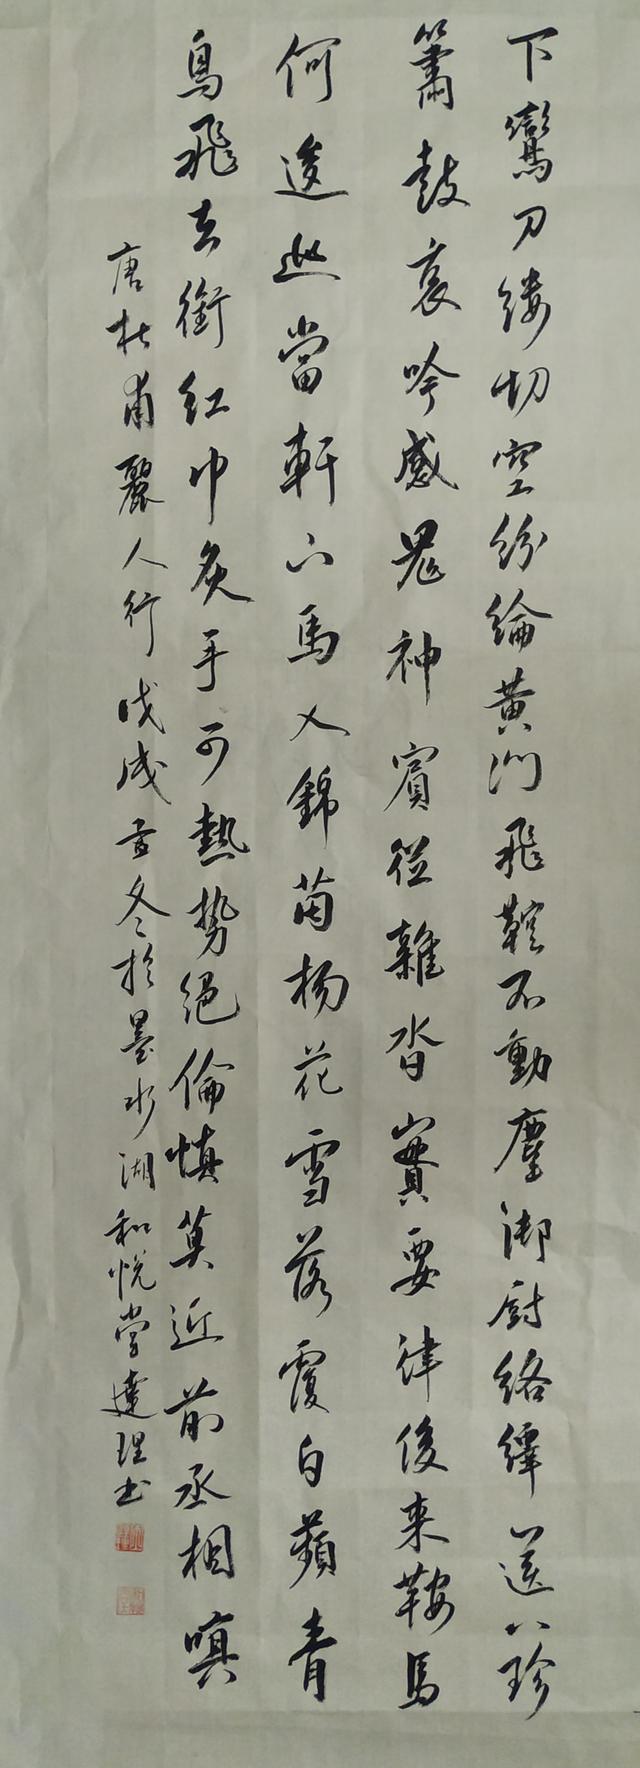 下鸞刀縷切空紛綸黃門飛鞚不動塵御厨絡繹送八珍
簫鼓哀吟感鬼神賓從雜沓實要津後来鞍馬
何逡巡當軒下馬入錦茵楊花雪落覆白蘋青
鳥飛去銜紅巾炙手可熱势絕倫慎莫近前丞相嗔
唐杜甫麗人行戊戌冬於墨水湖和悅堂達理书